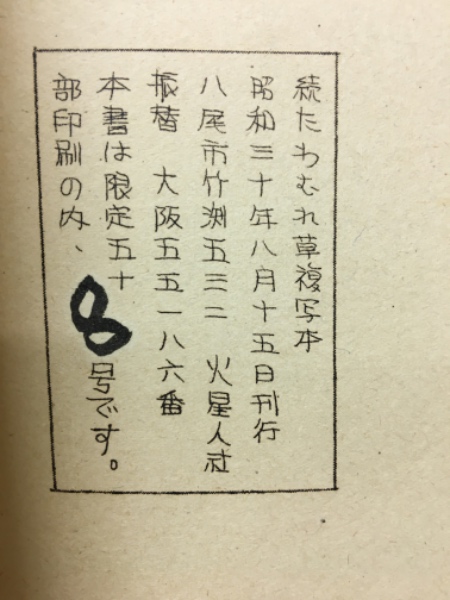 続たわむれ草複写本
昭和三十年八月十五日刊行
八尾市竹渕五三二　火星人社
振替　大阪五五一八六番
本書は限定五十
部印刷の内、8号です。